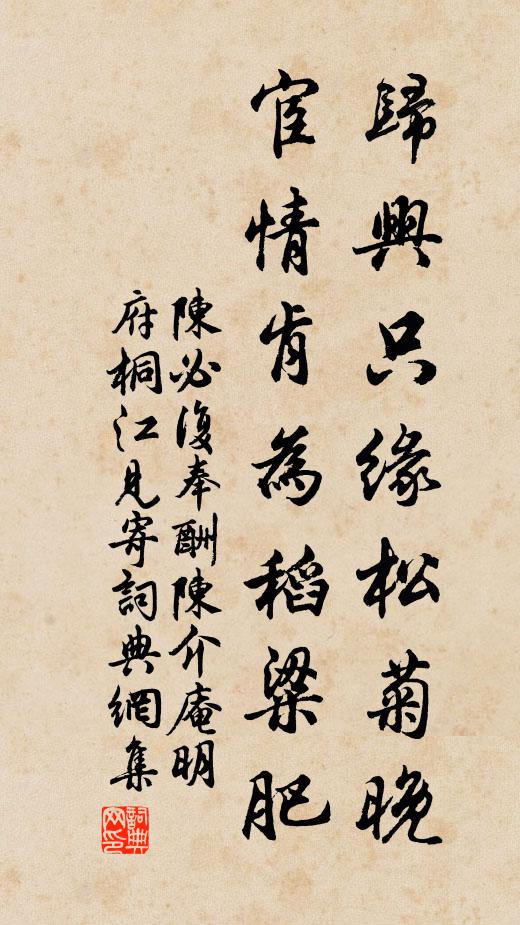 歸興只緣松菊晚
宦情肯為稻粱肥
陳必復奉酬陳介庵明
府桐江見寄詞典網集
詞典
网印